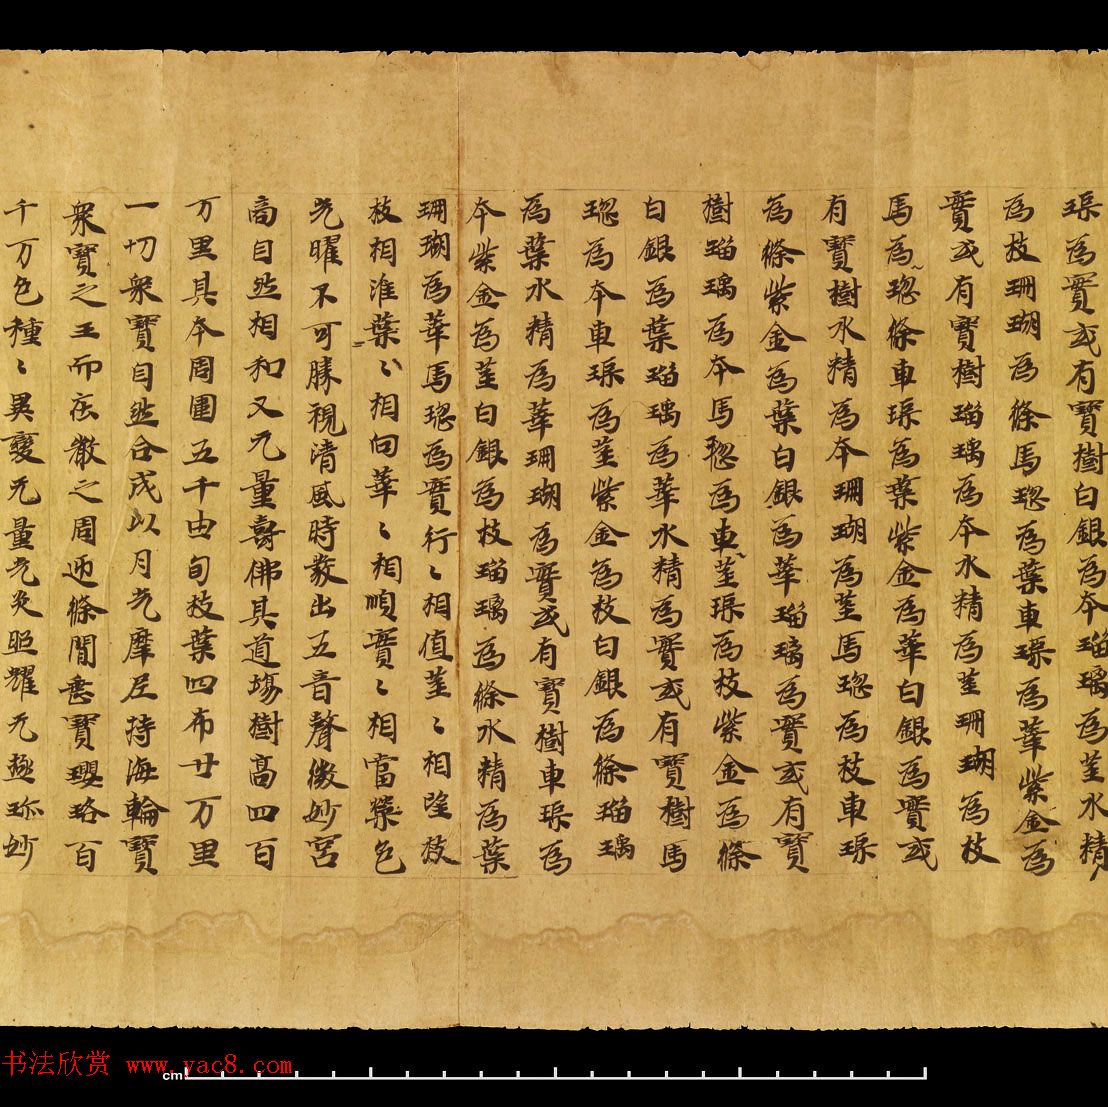 璖為實或有寶樹白銀為本瑠璃為莖水精
為枝珊瑚為條馬瑙為葉車璖為華紫金為
實或有寶樹瑠璃為本水精為莖珊瑚為枝
馬為瑙條車璖為葉紫金為華白銀為實或
有寶樹水精為本珊瑚為莖馬瑙為枝車璖
為條紫金為葉白銀為華瑠璃為實或有寶
樹瑠璃為本馬瑙為車莖璖為枝紫金為條
白銀為葉瑠璃為華水精為實或有寶樹馬
瑙為本車璖為莖紫金為枝白銀為條瑠璃
為葉水精為華珊瑚為實或有寶樹車璖為
本紫金為莖白銀為枝瑠璃為條水精為葉
珊瑚為華馬瑙為實行〻相值莖〻相望枝
枝相准葉〻相向華〻相順實〻相當榮色
光曜不可勝視清風時發出五音聲微妙宮
商自然相和又无量壽佛其道場樹高四百
万里其本周圍五千由旬枝葉四布廿万里
一切衆寶自然合成以月光摩尼持海輪寶
衆寶之王而莊嚴之周迊條間垂寶瓔珞百
千万色種〻異變无量光炎照耀无極珎妙
书法欣赏 www.yac8.com
cm